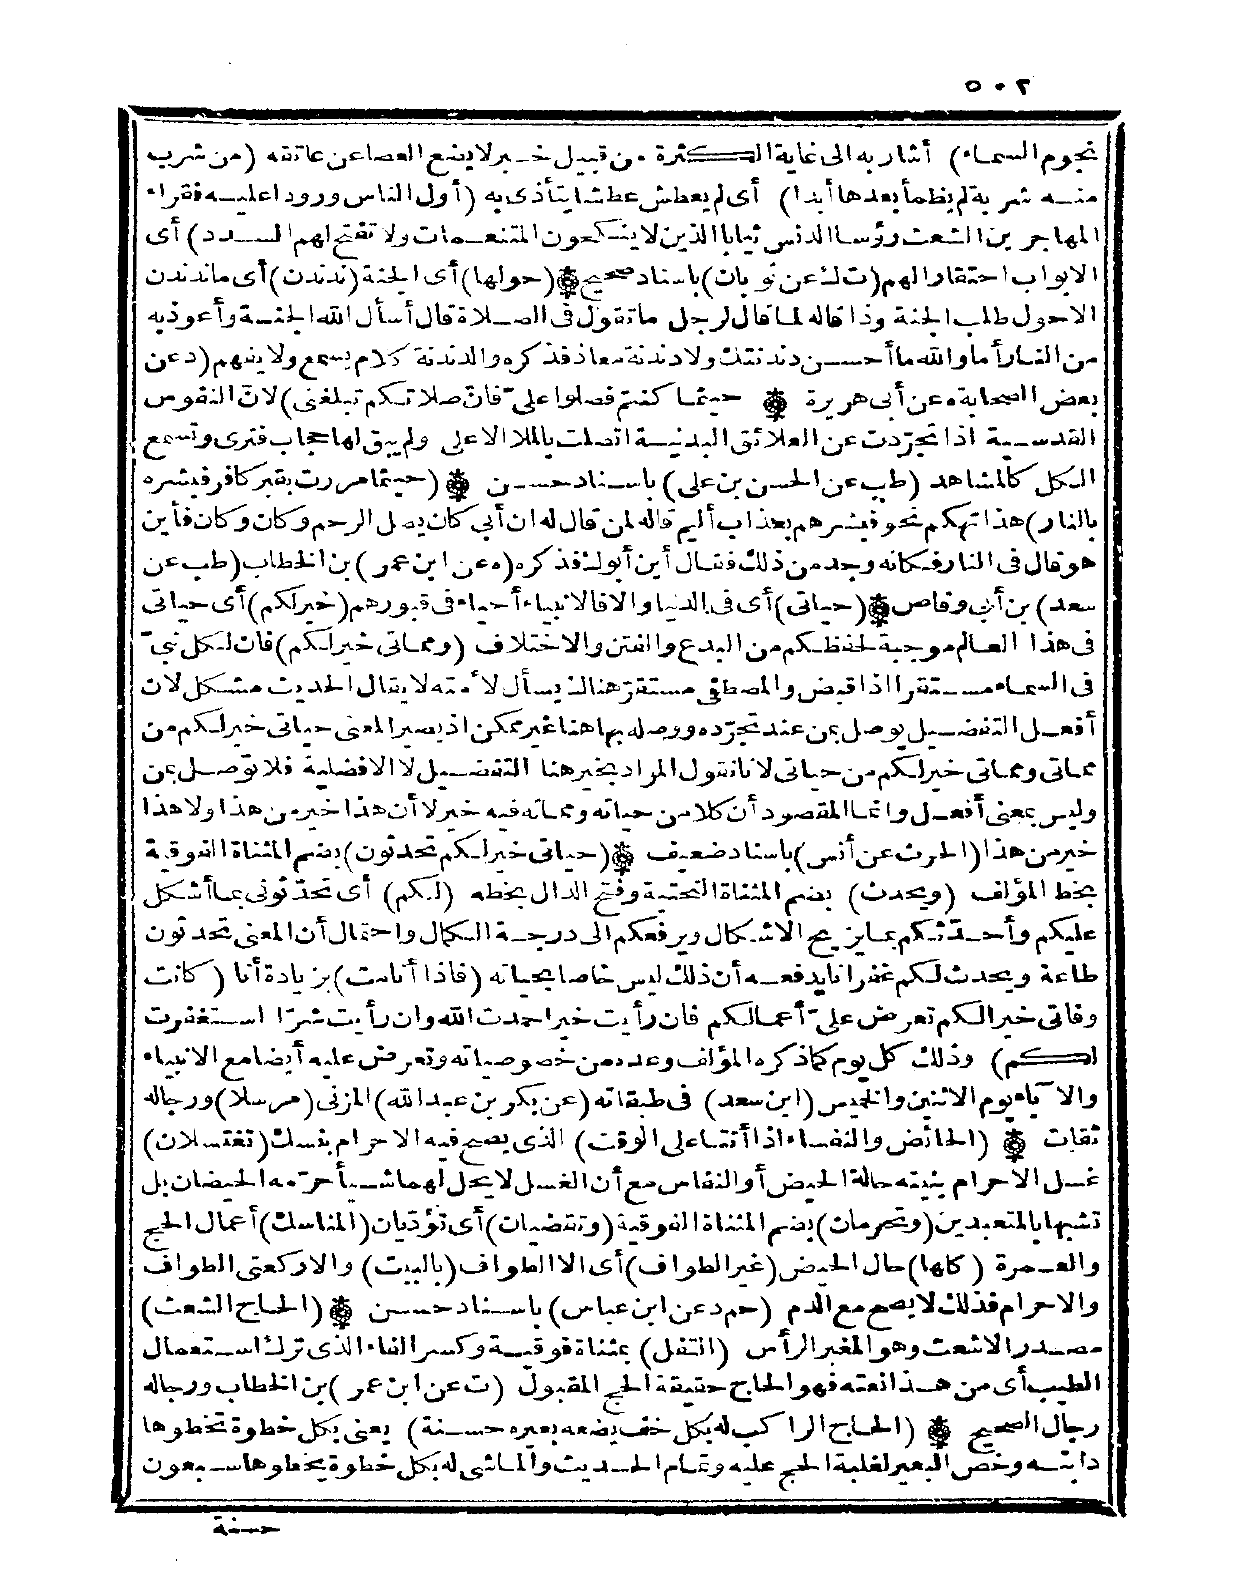 ٥٠٢
نجوم السماء) أشار به الى غاية الكثرة من قبيل خبر لا يضع العصا عن عاتقه (من شرب
منه شربة لم يظمأ بعدها أبدا) أى لم يعطش عطشا يتأذى به (أول الناس ورودا عليه فقراء
المهاجرين الشعث رؤسا الدنس ثيابا الذين لا ينكحون المتنعمات ولا تفتح لهم السدد) أى
الابواب احتقارا لهم (ت ك عن ثوبان) باسناد صحيح (حولها) أى الجنة (ندندن) أى ما ندندن
الاحول طلب الجنة وذا قاله لما قال لرجل ما تقول فى الصلاة قال أسأل الله الجنة وأعوذ به
من النار أما والله ما أحسن دندنتك ولا دندنة معاذ فذكره والدندنة كلام يسمع ولا يفهم (د عن
بعض الصحابة ه عن أبى هريرة حيثما كنتم فصلوا علىّ فانّ صلاتكم تبلغنى) لانّ النفوس
القدسية اذا تجرّدت عن العلائق البدنية اتصلت بالملا الاعلى ولم يبق لها حجاب فترى وتسمع
الكل كالمشاهد (طب عن الحسن بن على) باسناد حسن (حيثما مررت بقبر كافر فبشره
بالنار) هذا تهكم نحو فبشرهم بعذاب أليم قاله لمن قال له ان أبي كان يصل الرحم وكان وكان فأين
هو قال فى النار فكانه وجد من ذلك فقال أين أبوك فذكره (ه عن ابن عمر) بن الخطاب (طب عن
سعد) بن أبى وقاص (حياتى) أى فى الدنيا والا فالانبياء أحياء فى قبورهم (خير لكم) أى حياتى
فى هذا العالم موجبة لحفظكم من البدع والفتن والاختلاف (ومماتى خير لكم) فان لكل نبىّ
فى السماء مستقرا اذا قبض والمصطفى مستقرّ هنالك يسأل لأمته لا يقال الحديث مشكل لان
أفعل التفضيل يوصل بمن عند تجرّده ووصله بها هنا غير ممكن اذ يصير المعنى حياتى خير لكم من
مماتى ومماتى خير لكم من حياتى لانا نقول المراد بخير هنا التفضيل لا الافضلية فلا توصل بمن
وليس بمعنى أفعل وانما المقصود أن كلا من حياته ومماته فيه خير لا أن هذا خير من هذا ولا هذا
خير من هذا (الحرث عن أنس) باسناد ضعيف (حياتى خير لكم تحدثون) بضم المثناة الفوقية
بخط المؤلف (ويحدث) بضم المثناة التحتية وفتح الدال بخطه (لكم) أى تحدّثونى بما أشكل
عليكم وأحدّثكم بما يزيح الاشكال ويرفعكم الى درجة الكمال واحتمال أن المعنى تحدثون
طاعة ويحدث لكم غفرانا يدفعه أن ذلك ليس خاصا بحياته (فاذا أنا مت) بزيادة أنا (كانت
وفاتى خيرا لكم تعرض علىّ أعمالكم فان رأيت خيرا حمدت الله وان رأيت شرّا استغفرت
لكم) وذلك كل يوم كما ذكره المؤلف وعده من خصوصياته وتعرض عليه أيضا مع الانبياء
والآباء يوم الاثنين والخميس (ابن سعد) فى طبقاته (عن بكر بن عبد الله) المزنى (مرسلا) ورجاله
ثقات (الحائض والنفساء اذا أتتا على الوقت) الذى يصح فيه الاحرام بنسك (تغتسلان)
غسل الاحرام بنيته حالة الحيض أو النفاس مع أن الغسل لا يحل لهما شيأ حرّمه الحيضان بل
تشبها بالمتعبدين (وتحرمان) بضم المثناة الفوقية (وتقضيان) أى تؤدّيان (المناسك) أعمال الحج
والعمرة (كلها) حال الحيض (غير الطواف) أى الا الطواف (بالبيت) والا ركعتى الطواف
والاحرام فذلك لا يصح مع الدم (حم د عن ابن عباس) باسناد حسن (الحاج الشعث)
مصدر الاشعث وهو المغبر الرأس (التفل) بمثناة فوقية وكسر الفاء الذى ترك استعمال
الطيب أى من هذا نعته فهو الحاج حقيقة الحج المقبول (ت عن ابن عمر) بن الخطاب ورجاله
رجال الصحيح (الحاج الراكب له بكل خف يضعه بعيره حسنة) يعنى بكل خطوة تخطوها
دابته وخص البعير لغلبة الحج عليه وتمام الحديث والماشى له بكل خطوة يخطوها سبعون
حسنة